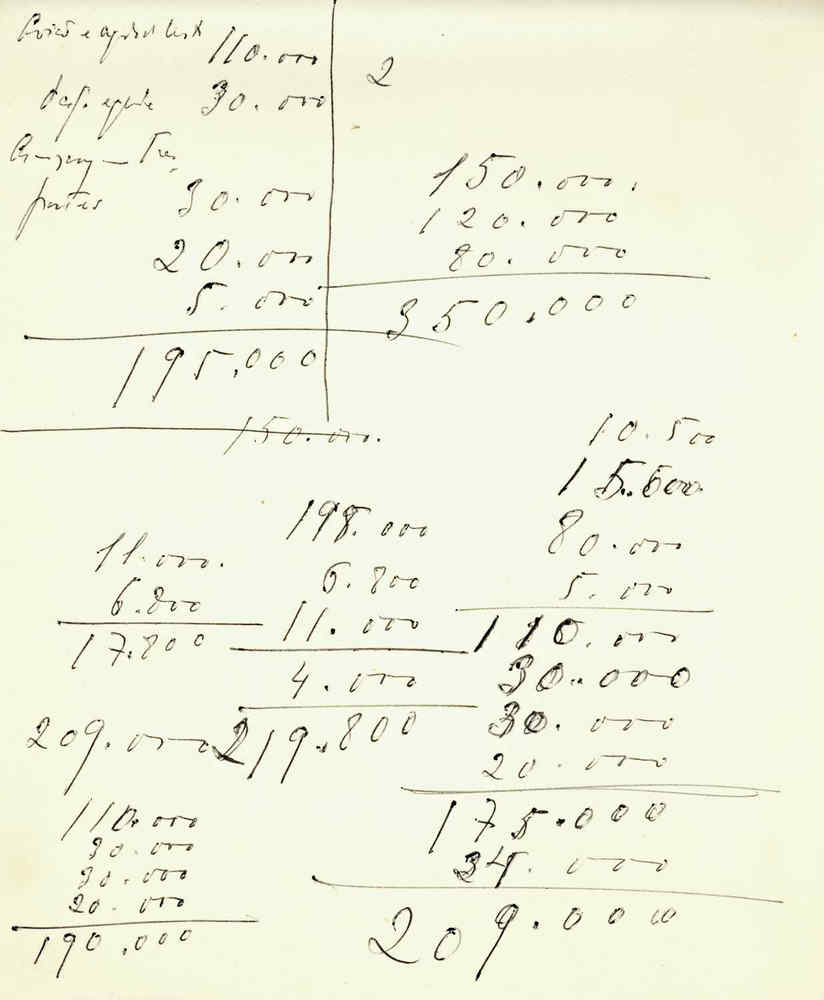 110.000
30.000
30.000
20.000
5.000
195.000
2
150.000.
120.000
80.000
350.000
150.000.
11.000.
6.800
17.800
209.000
198.000
6.800
11.000
4.000
219.800
10.500
80.000
5.000
110.000
30.000
30.000
20.000
175.000
34.000
209.000
110.000
30.000
30.000
20.000
190.000